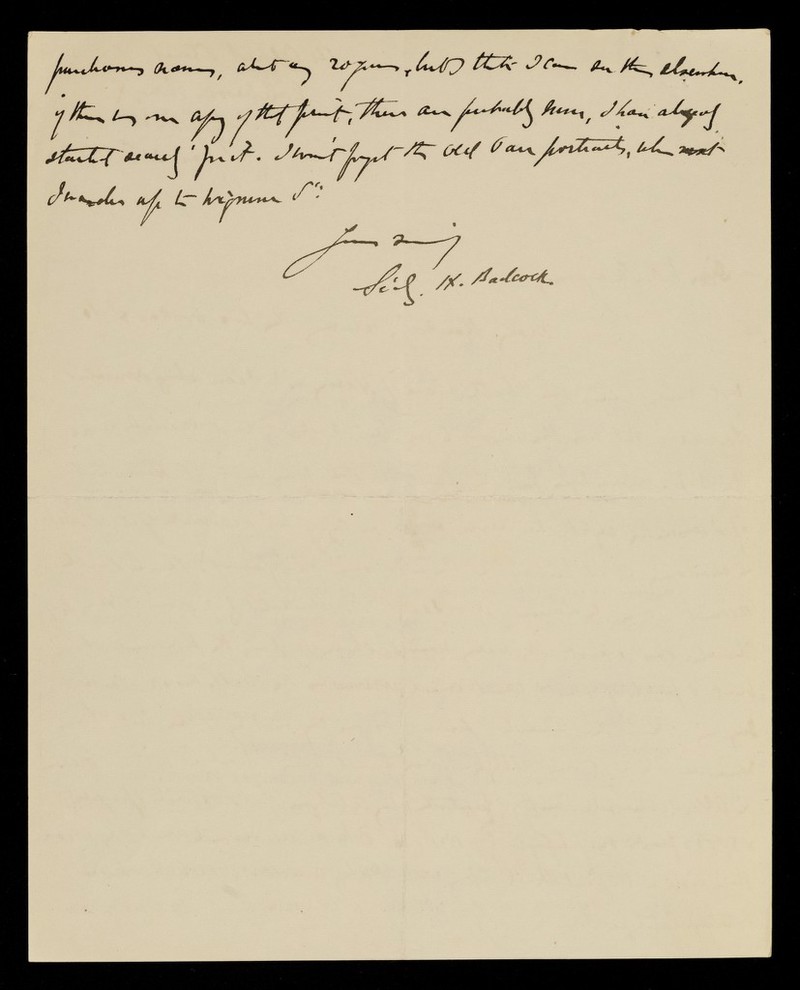 purchasers names, about 20 years, but I think I can see them elsewhere,
if there is one copy of that print, there are probably more, I have already
started search for it. I won't forget the Old Parr portraits, when next
I wander up to Wigmore St:
Yours
H. Badcock.